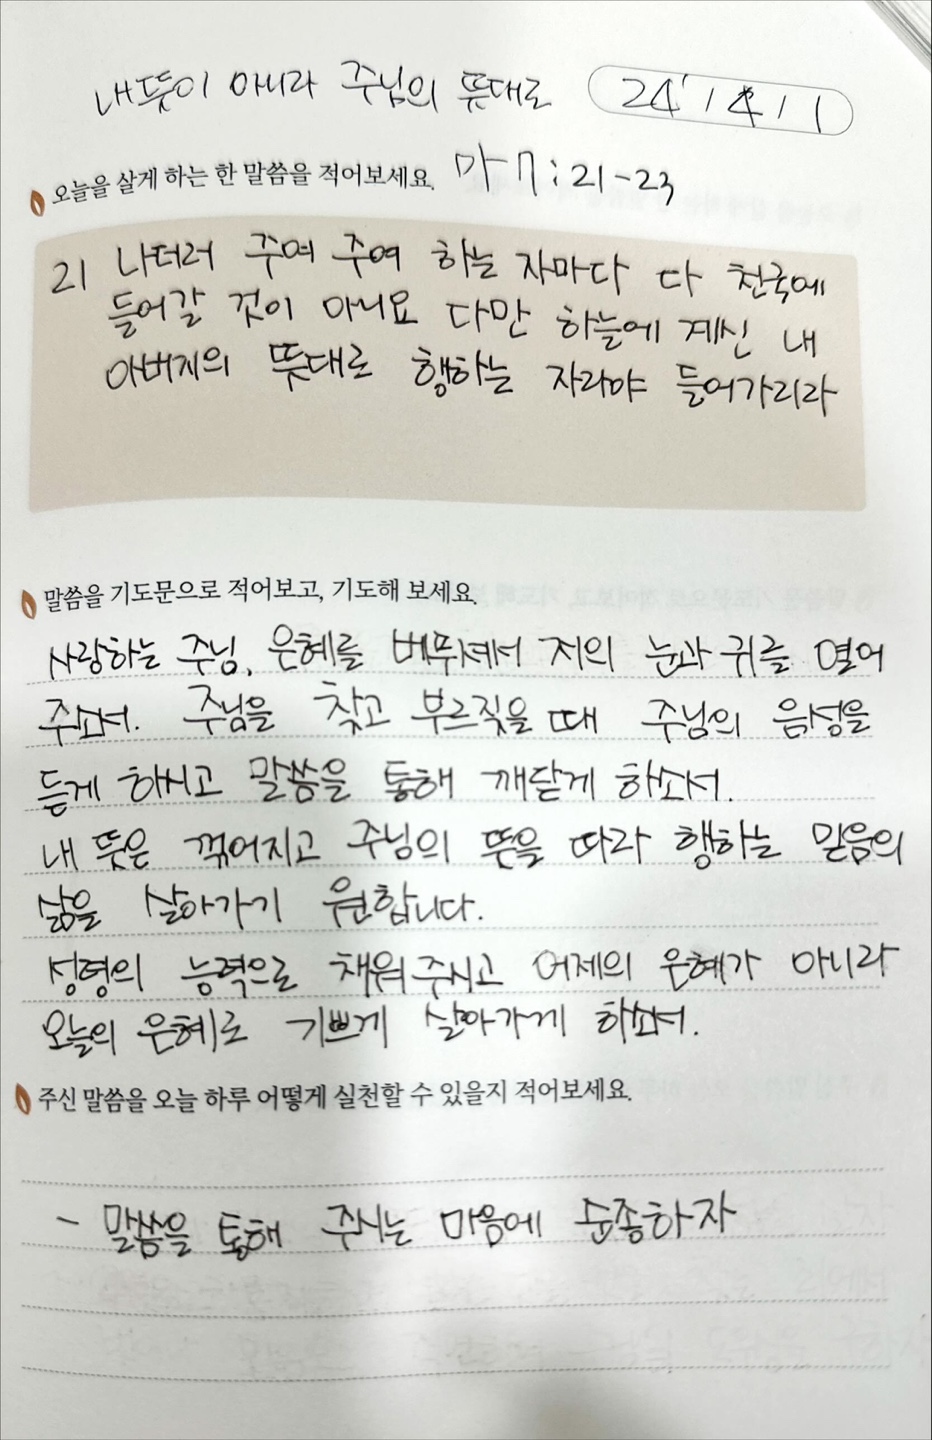 내 뜻이 아니라 주님의 뜻대로 24' / 4 / 1
오늘을 살게 하는 한 말씀을 적어보세요. 마 7 : 21-23
21 나더러 주여 주여 하는 자마다 다 천국에
들어갈 것이 아니요 다만 하늘에 계신 내
아버지의 뜻대로 행하는 자라야 들어가리라
말씀을 기도문으로 적어보고, 기도해 보세요.
사랑하는 주님, 은혜를 베푸셔서 저의 눈과 귀를 열어
주소서. 주님을 찾고 부르짖을 때 주님의 음성을
듣게 하시고 말씀을 통해 깨닫게 하소서.
내 뜻은 꺾어지고 주님의 뜻을 따라 행하는 믿음의
삶을 살아가기 원합니다.
성령의 능력으로 채워주시고 어제의 은혜가 아니라
오늘의 은혜로 기쁘게 살아가게 하소서.
주신 말씀을 오늘 하루 어떻게 실천할 수 있을지 적어보세요.
- 말씀을 통해 주시는 마음에 순종하자